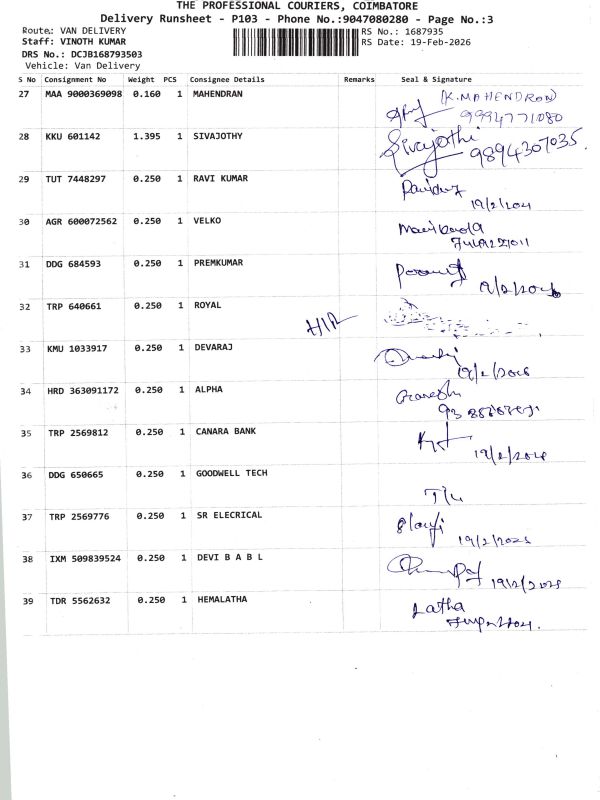 THE PROFESSIONAL COURIERS, COIMBATORE
Delivery Runsheet - P103 - Phone No.:9047080280 - Page No.:3
Route: VAN DELIVERY
RS No.: 1687935
Staff: VINOTH KUMAR
RS Date: 19-Feb-2026
DRS No.: DCJB168793503
Vehicle: Van Delivery
S No Consignment No Weight PCS Consignee Details Remarks Seal & Signature
27 MAA 9000369098 0.160 1 MAHENDRAN (K.MAHENDRAN)
9994771080
28 KKU 601142 1.395 1 SIVAJOTHY Sivajothi
9894307035
29 TUT 7448297 0.250 1 RAVI KUMAR
30 AGR 600072562 0.250 1 VELKO
31 DDG 684593 0.250 1 PREMKUMAR
32 TRP 640661 0.250 1 ROYAL
33 KMU 1033917 0.250 1 DEVARAJ
34 HRD 363091172 0.250 1 ALPHA
35 TRP 2569812 0.250 1 CANARA BANK
36 DDG 650665 0.250 1 GOODWELL TECH
37 TRP 2569776 0.250 1 SR ELECRICAL
38 IXM 509839524 0.250 1 DEVI B A B L
39 TDR 5562632 0.250 1 HEMALATHA Latha